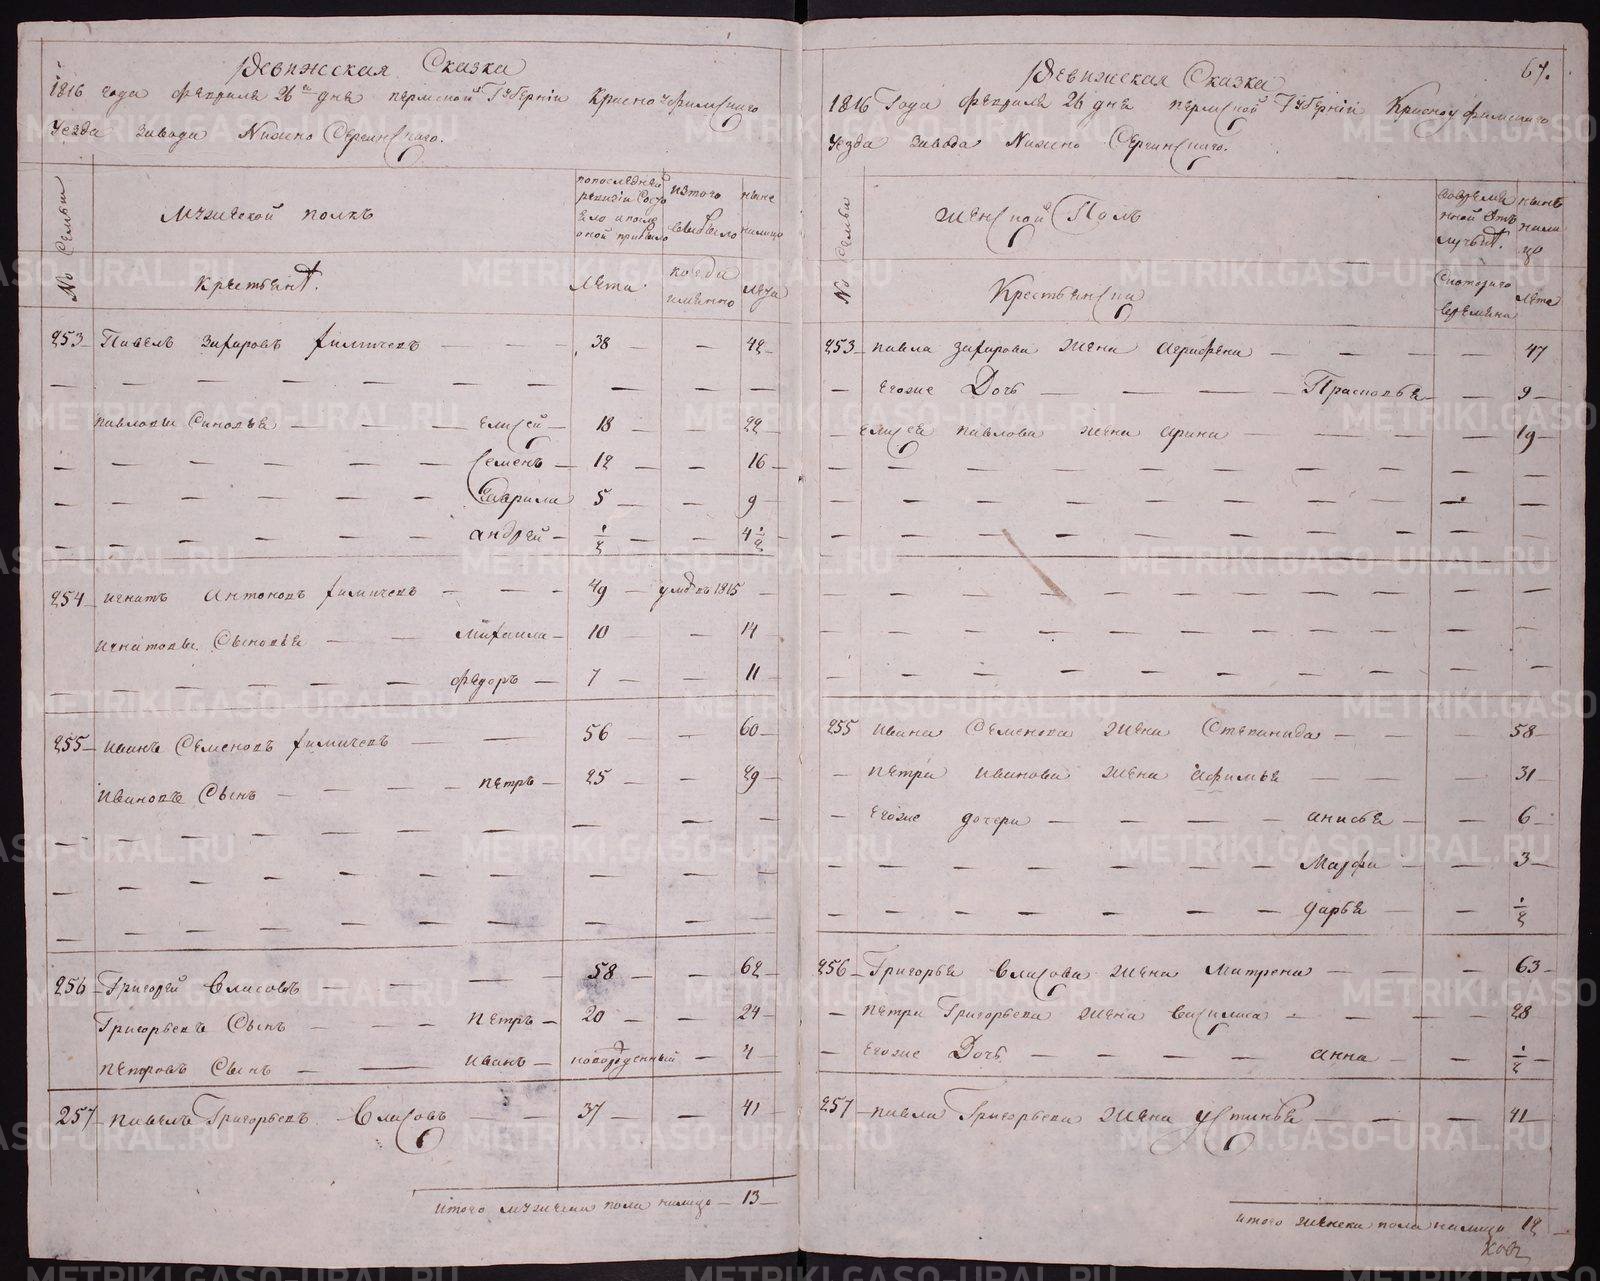 Ревижская Сказка
1816 года февраля 26 дня пермской Губернiи Красноуфимскаго
Уезда завода Нижно Сергинскаго.
№ Семьи
Мужеской полъ
по последней ревизiи Состояло и после оной прибыло
из того выбыло
ныне налицо
Крестьянѣ.
Лета
когда именно
Лета
253 Павелъ Захаровъ 38 42
павловы Синовья Елисей 18 22
Семенъ 12 16
Гаврила 5 9
андрей 1/2 4 1/2
254 игнатъ Антоновъ 49 умре въ 1815
игнатовы Сыновья Михаила 10 14
федоръ 7 11
255 иванъ Семеновъ 56 60
ивановъ Сынъ петръ 25 29
256 Григорей Власовъ 58 62
Григорьевъ Сынъ петръ 20 24
петровъ Сынъ иванъ новорожденный 4
257 павелъ Григорьевъ Власовъ 37 41
итого мужеска пола налицо 13
67.
Ревижская Сказка
1816 Года февраля 26 дня пермской Губернiй Красноуфимскаго
Уезда завода Нижно Сергинскаго.
№ Семьи
Женской Полъ
во временной отлучкѣ.
нынѣ налицо
Крестьянска
С котораго времяни
лета
253 павла захарова жена Аграфена 47
Егоже Дочь Прасковья 9
Елисея павлова жена арина 19
255 ивана Семенова жена Степанида 58
петра иванова жена афимья 31
Егоже дочери анисья 6
Марфа 3
дарья 1/2
256 Григорья Власова жена матрена 63
петра Григорьева жена василиса 28
Егоже Дочь анна 1/2
257 павла Григорьева жена устинья 41
итого женска пола налицо 12
METRIKI.GASO-URAL.RU